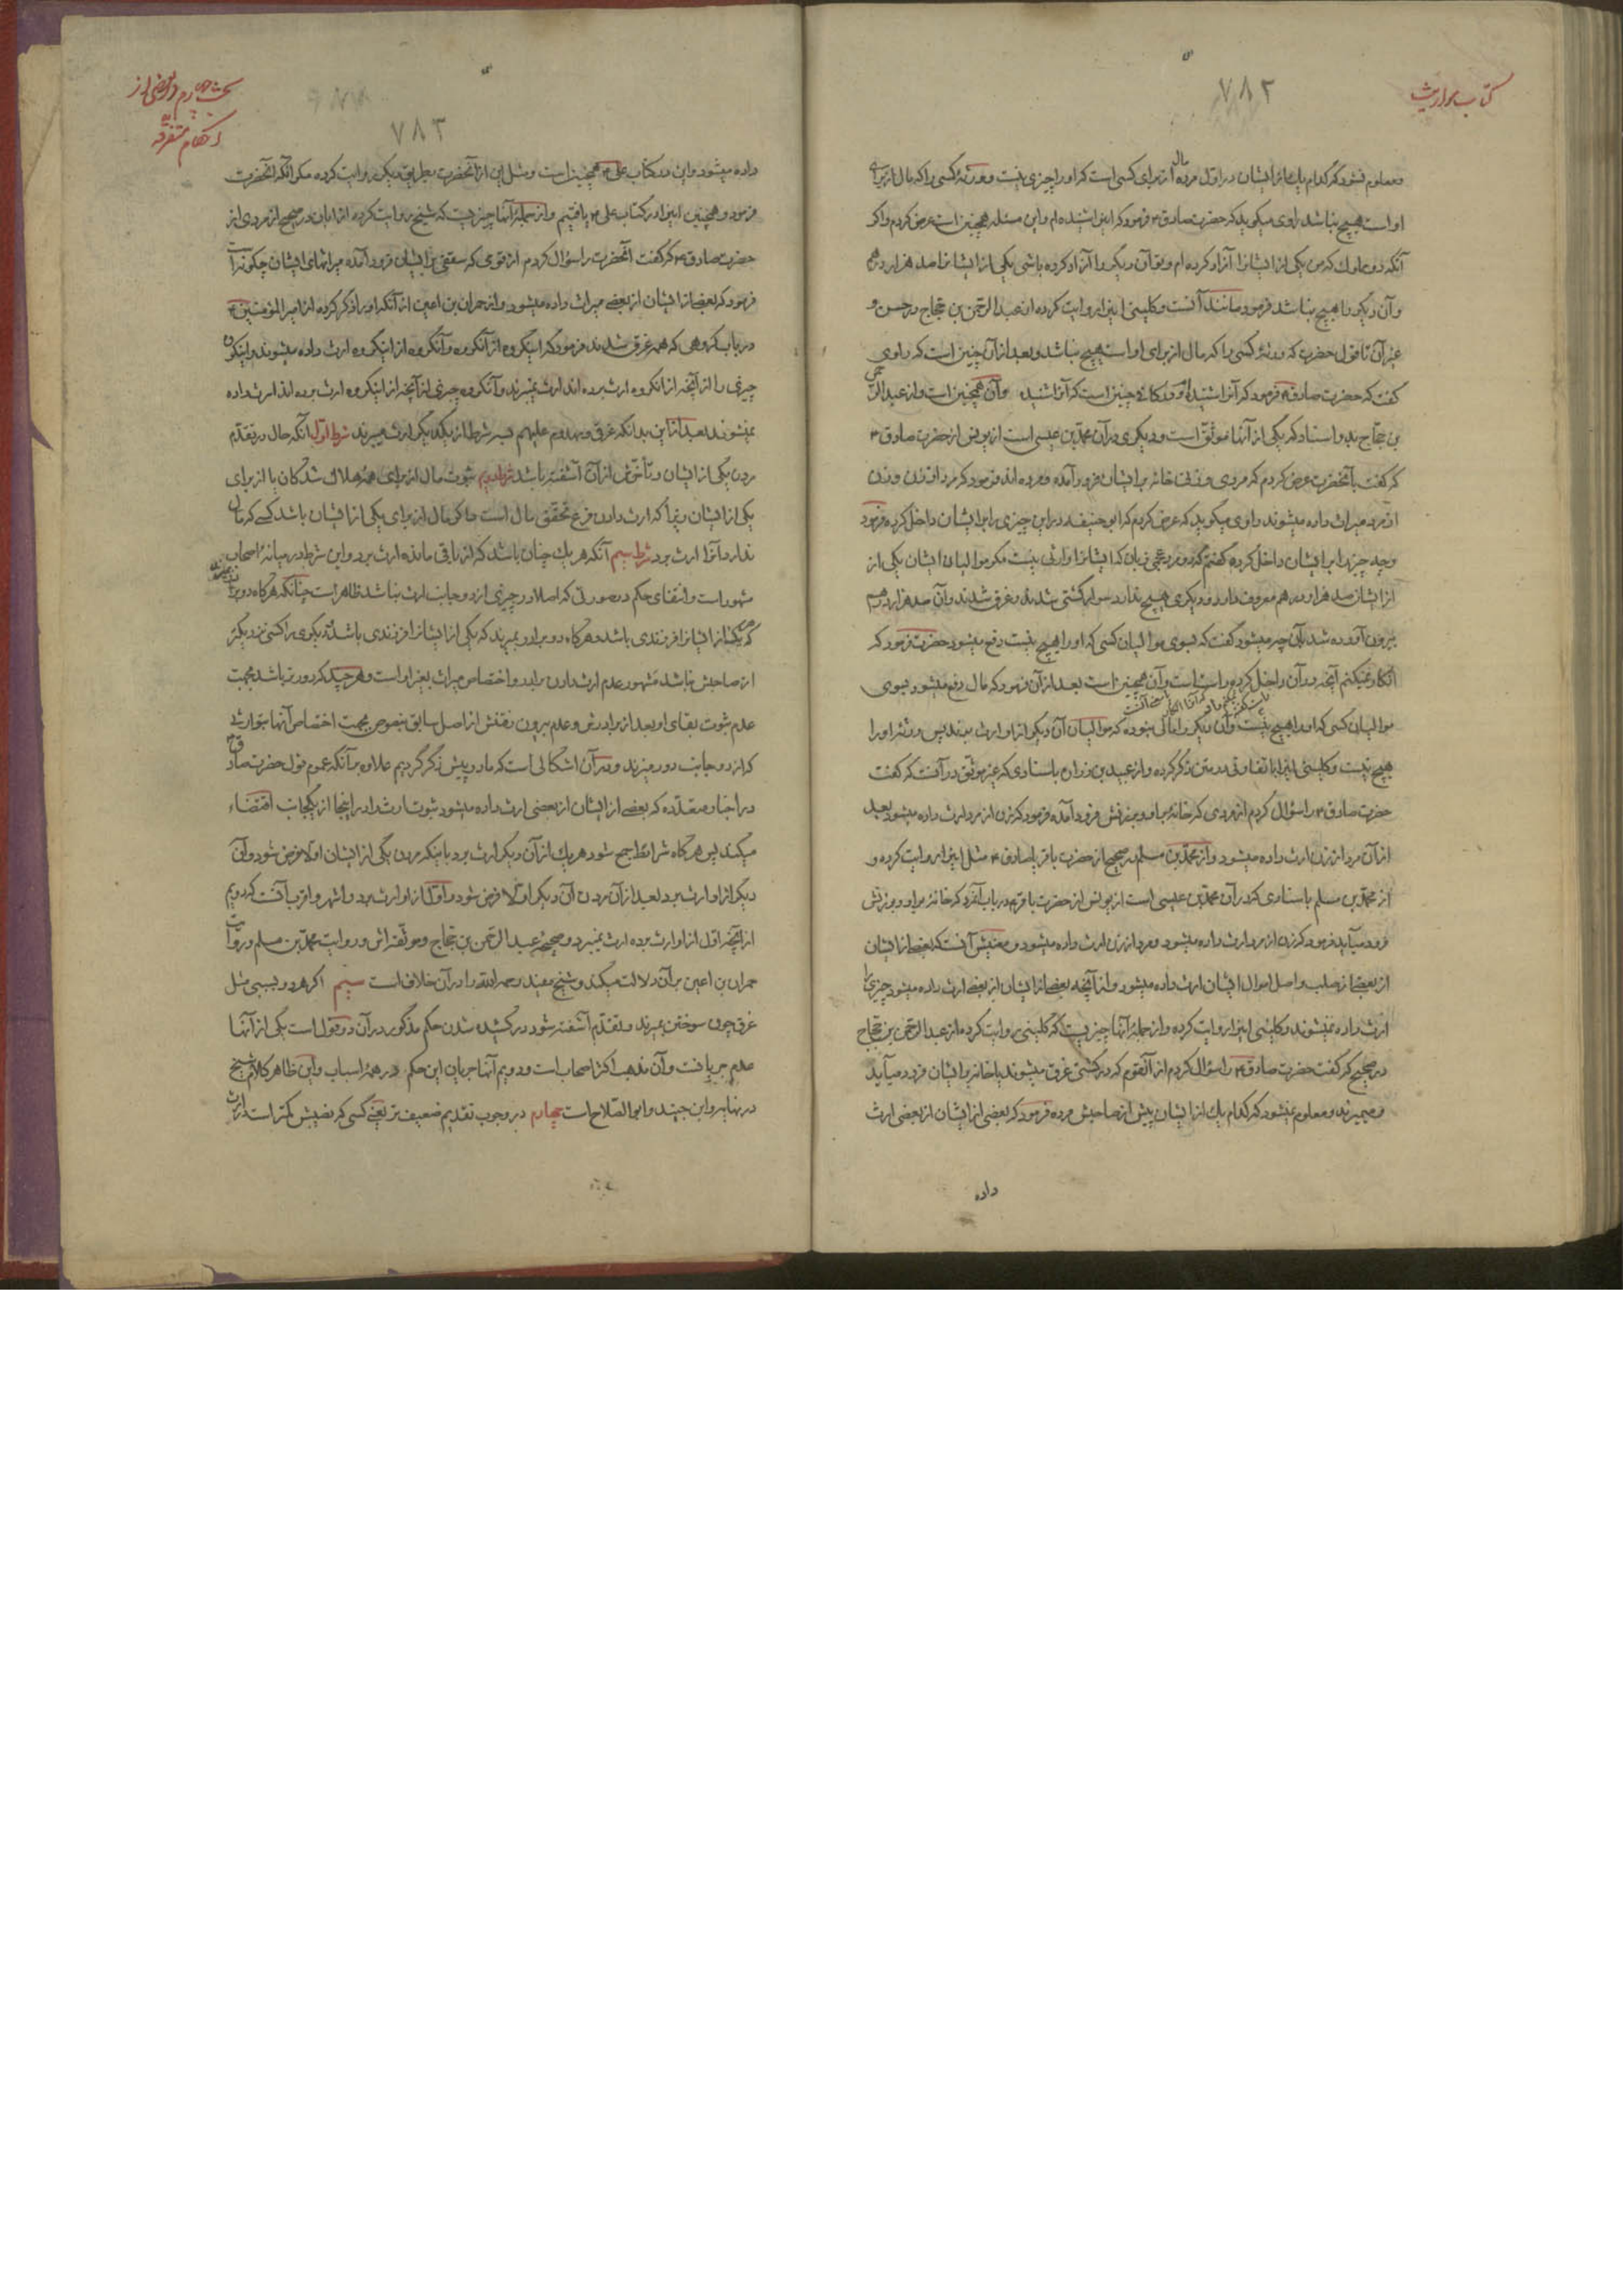 کتاب مواریث
۷۸۲
ومعلوم نشود که کدام یك از ایشان در اول مرده مال از برای کسی است که او را چیزی نیست و ورثهٔ کسی را که مال از برای
او است هیچ نباشد راوی میگوید که حضرت صادق ع فرمود که این را شنیده ام و این مسئله همچنین است عرض کردم و اگر
آنکه دو مملوك که من یکی از ایشانرا آزاد کرده ام و تو آن دیگر را آزاد کرده باشی یکی از ایشانرا صد هزار درهم
و آن دیگر را هیچ نباشد فرمود مانند آنست و کلینی اینرا روایت کرده از عبد الرحمن بن حجاج در حسن و
غیر آن تا قول حضرت که ورثهٔ کسی را که مال از برای او است هیچ نباشد و بعد از آن چنین است که راوی
گفت که حضرت صادق ع فرمود که آنرا شنیده چنین است که آنرا شنیده و آن همچنین است و از عبد الرحمن
بن حجاج بدو اسناد که یکی از آنها موثق است و دیگری در آن محمد بن عیسی است از یونس از حضرت صادق ع
که گفت بآنحضرت عرض کردم که مردی و زنی خانه بر ایشان فرود آمده و مرده اند فرمود که مرد از زن و زن
از مرد میراث داده میشوند راوی میگوید که عرض کردم که ابو حنیفه در این چیزی را بر ایشان داخل کرده فرمود
و چه چیز را بر ایشان داخل کرده گفتم که دو مرد عجمی زبان که ایشانرا وارثی نیست مگر موالیان ایشان یکی از
از ایشان صد هزار درهم معروف دارد و دیگری هیچ ندارد سوار کشتی شدند و غرق شدند و آن صد هزار درهم
بیرون آورده شد بآن چه میشود گفت که بسوی موالیان کسی که او را هیچ نیست دفع میشود حضرت فرمود که
انکار نمیکنم آنچه در آن داخل کرده راست است و آن همچنین است بعد از آن فرمود که مال دفع میشود بسوی
موالیان کسی که او را هیچ نیست و آن دیگر را مالی نبوده که موالیان آن دیگر از او ارث برند پس ورثهٔ او را
هیچ نیست و کلینی اینرا با تفاوتی در متن ذکر کرده و از عبید بن زراره باسنادی که غیر موثق در آنست که گفت
حضرت صادق ع را سؤال کردم از مردی که خانه بر او و بر زنش فرود آمده فرمود که زن از مرد ارث داده میشود بعد
از آن مرد از زن ارث داده میشود و از محمد بن مسلم در صحیح از حضرت باقر یا صادق ع مثل این را روایت کرده و
از محمد بن مسلم باسنادی که در آن محمد بن عیسی است از یونس از حضرت باقر ع در باب آنمرد که خانه بر او و بر زنش
فرود میآید فرمود که زن از مرد ارث داده میشود و مرد از زن ارث داده میشود و معنیش آنست که بعض از ایشان
از بعض از صلب و اصل اموال ایشان ارث داده میشود و از آنچه بعض از ایشان از بعض ارث داده میشود چیزی را
ارث داده نمیشوند و کلینی اینرا روایت کرده و از جملهٔ آنها چیزیست که کلینی روایت کرده از عبد الرحمن بن حجاج
در صحیح که گفت حضرت صادق ع را سؤال کردم از آنقوم که در کشتی غرق میشوند یا خانه بر ایشان فرود میآید
و میمیرند و معلوم نمیشود که کدام یك از ایشان پیش از صاحبش مرده فرمود که بعضی از ایشان از بعضی ارث
داده
بحث چهارم در بعضی از
احکام متفرقه
۷۸۳
داده میشود و این در کتاب علی ع همچنین است و مثل این از آنحضرت بطریق دیگر روایت کرده مگر آنکه آنحضرت
فرمود و همچنین اینرا در کتاب علی ع یافتیم و از جملهٔ آنها چیزیست که شیخ روایت کرده از ابان در صحیح از مردی از
حضرت صادق ع که گفت آنحضرت را سؤال کردم از قومی که سقفی بر ایشان فرود آمده میراثهای ایشان چگونه است
فرمود که بعض از ایشان از بعض میراث داده میشود و از حمران بن اعین از آنکه او را ذکر کرده از امیر المؤمنین ع
در باب گروهی که همه غرق شدند فرمود که اینگروه از آنگروه و آنگروه از اینگروه ارث داده میشوند و اینگروه
چیزی را از آنچه از آنگروه ارث برده اند ارث نمیبرند و آنگروه چیزی از آنچه از اینگروه ارث برده اند ارث داده
نمیشوند بعد از این بدانکه غرقی و مهدوم علیهم بسه شرط از یکدیگر ارث میبرند شرط اول آنکه حال در تقدم
مردن یکی از ایشان و تأخرش از آن آشفته باشد شرط دویم ثبوت مال از برای همهٔ هلاك شدگان یا از برای
یکی از ایشان زیرا که ارث دادن فرع تحقق مال است و اگر مال از برای یکی از ایشان باشد کسی که مال
ندارد آنرا ارث برد شرط سیم آنکه هر یك چنان باشد که از باقی مانده ارث برد و این شرط در میانهٔ اصحاب
مشهور است و انتفای حکم در صورتی که اصلا در چیزی از دو جانب ارث نباشد ظاهر است چنانکه هرگاه دو برادر
که هر یك از ایشانرا فرزندی باشد و هرگاه دو برادر بمیرند که یکی از ایشانرا فرزندی باشد و دیگری را کسی نزدیکتر
از صاحبش نباشد مشهور عدم ارث دادن برادر و اختصاص میراث بغیر او است و هر چند که دورتر باشد بجهت
عدم ثبوت بقای او بعد از برادرش و عدم بیرون رفتنش از اصل سابق بنصوص بجهت اختصاص آنها بتوارثی
که از دو جانب دور میزند و در آن اشکالی است که ما در پیش ذکر کردیم علاوه بر آنکه عموم قول حضرت صادق ع
در اخبار متعدده که بعضی از ایشان از بعضی ارث داده میشود ثبوت ارث را در اینجا از یکجانب اقتضاء
میکند پس هرگاه شرائط جمع شود هر یك از آن دیگر ارث برد باینکه مردن یکی از ایشان اولا فرض شود و آن
دیگر از او ارث برد بعد از آن مردن آن دیگر اولا فرض شود و اول از او ارث برد و اشهر و اقرب آنست که دویم
از آنچه اول از او ارث برده ارث نمیبرد و صحیحهٔ عبد الرحمن بن حجاج و موثقه اش و روایت محمد بن مسلم و روایت
حمران بن اعین بر آن دلالت میکند و شیخ مفید رحمه الله را در آن خلاف است سیم اگر هر دو بسببی مثل
غرق چون سوختن بمیرند و تقدم آشفته شود در کشیده شدن حکم مذکور در آن دو قول است یکی از آنها
عدم جریانست و آن مذهب اکثر اصحاب است و دویم آنها جریان این حکم در همهٔ اسباب و این ظاهر کلام شیخ
در نهایه و ابن جنید و ابی الصلاح است چهارم در وجوب تقدیم ضعیف تر یعنی کسی که نصیبش کمتر است در ارث